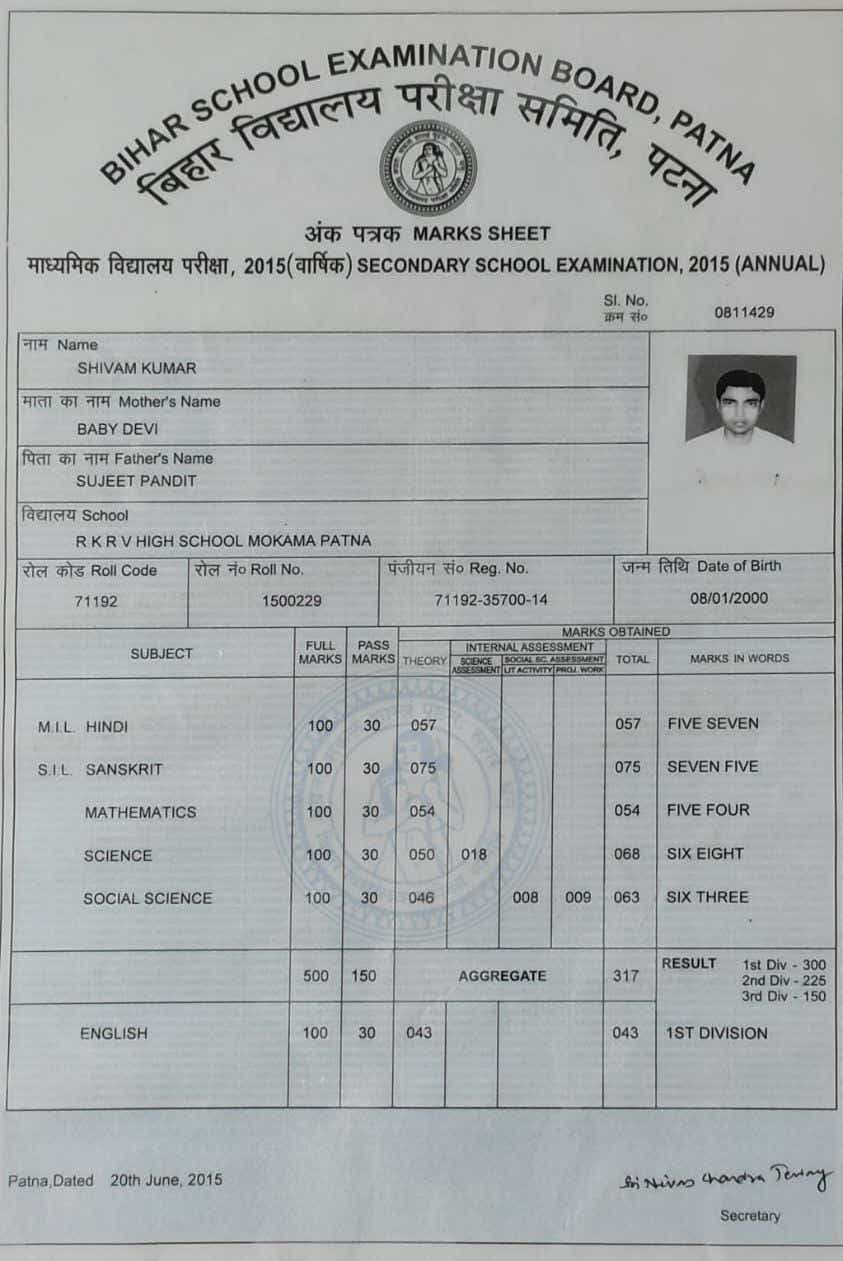 BIHAR SCHOOL EXAMINATION BOARD, PATNA
बिहार विद्यालय परीक्षा समिति, पटना
अंक पत्रक MARKS SHEET
माध्यमिक विद्यालय परीक्षा, 2015(वार्षिक) SECONDARY SCHOOL EXAMINATION, 2015 (ANNUAL)
Sl. No.
क्रम सं० 0811429
नाम Name
SHIVAM KUMAR
माता का नाम Mother's Name
BABY DEVI
पिता का नाम Father's Name
SUJEET PANDIT
विद्यालय School
R K R V HIGH SCHOOL MOKAMA PATNA
रोल कोड Roll Code रोल नं० Roll No. पंजीयन सं० Reg. No. जन्म तिथि Date of Birth
71192 1500229 71192-35700-14 08/01/2000
SUBJECT FULL MARKS PASS MARKS MARKS OBTAINED
THEORY INTERNAL ASSESSMENT TOTAL MARKS IN WORDS
SCIENCE ASSESSMENT SOCIAL SC. ASSESSMENT
LIT ACTIVITY PROJ. WORK
M.I.L. HINDI 100 30 057 057 FIVE SEVEN
S.I.L. SANSKRIT 100 30 075 075 SEVEN FIVE
MATHEMATICS 100 30 054 054 FIVE FOUR
SCIENCE 100 30 050 018 068 SIX EIGHT
SOCIAL SCIENCE 100 30 046 008 009 063 SIX THREE
500 150 AGGREGATE 317 RESULT 1st Div - 300
2nd Div - 225
3rd Div - 150
ENGLISH 100 30 043 043 1ST DIVISION
Patna,Dated 20th June, 2015
Secretary